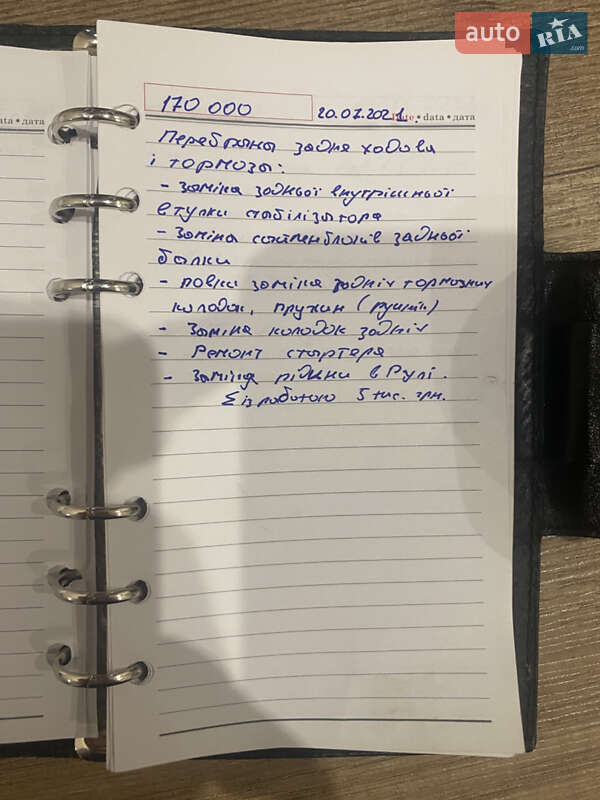 auto RIA .com
ata • дата
170 000
20.07.2021
Date • data • дата
Перебрана задня ходова
і тормозы:
- Заміна задньої внутрішньої
втулки стабілізатора
- Заміна сайтенблоків задньої
балки
- повна заміна задніх тормозних
колодок, пружин (ручнік)
- Заміна колодок задніх
- Ремонт стартера
- Заміна рідини в Рулі.
Σ із роботою 5 тис. грн.